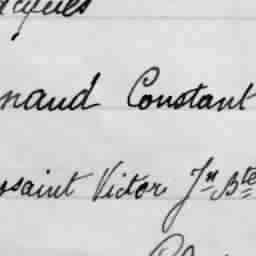 acques
naud Constant
ssaint Victor Jn Bte